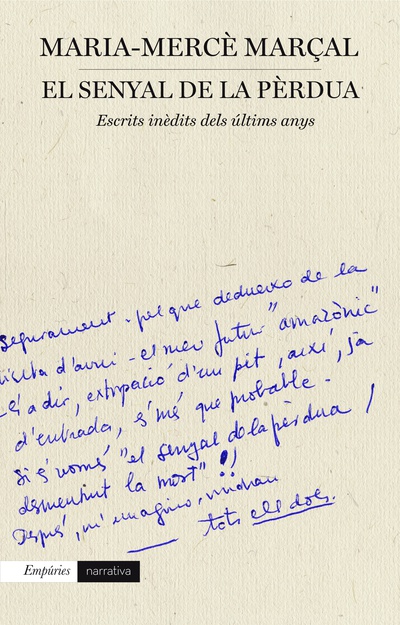 MARIA-MERCÈ MARÇAL
EL SENYAL DE LA PÈRDUA
Escrits inèdits dels últims anys
Segurament - pel que dedueixo de la
visita d'avui - el meu futur "amazònic"
és a dir, extirpació d'un pit, així, ja
d'entrada, és més que probable.
Si és només "el senyal de la pèrdua /
desmentint la mort" !!
Després, m'imagino, vindran
tots ells dols.
Empúries
narrativa